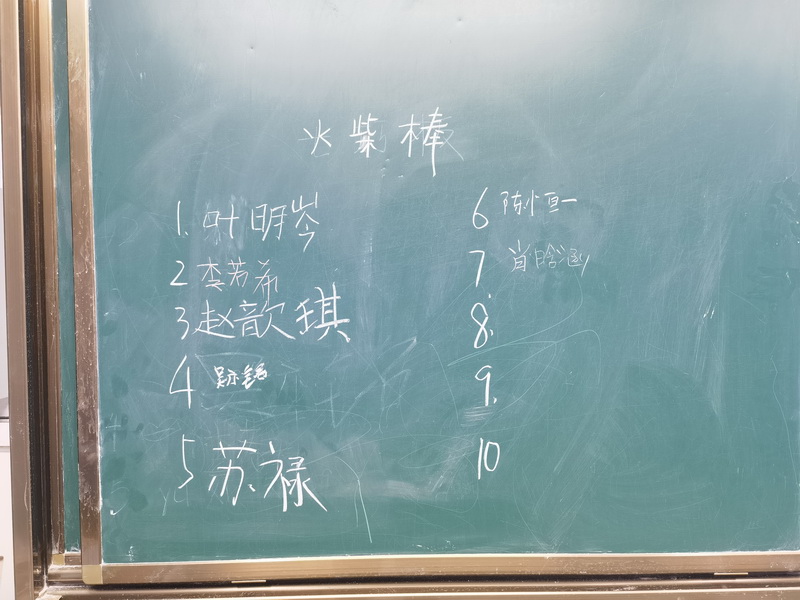 火柴棒
1. 叶明岑
2 李若希
3 赵歆琪
4
5 苏禄
6 陈恒一
7 肖晗涵
8.
9.
10